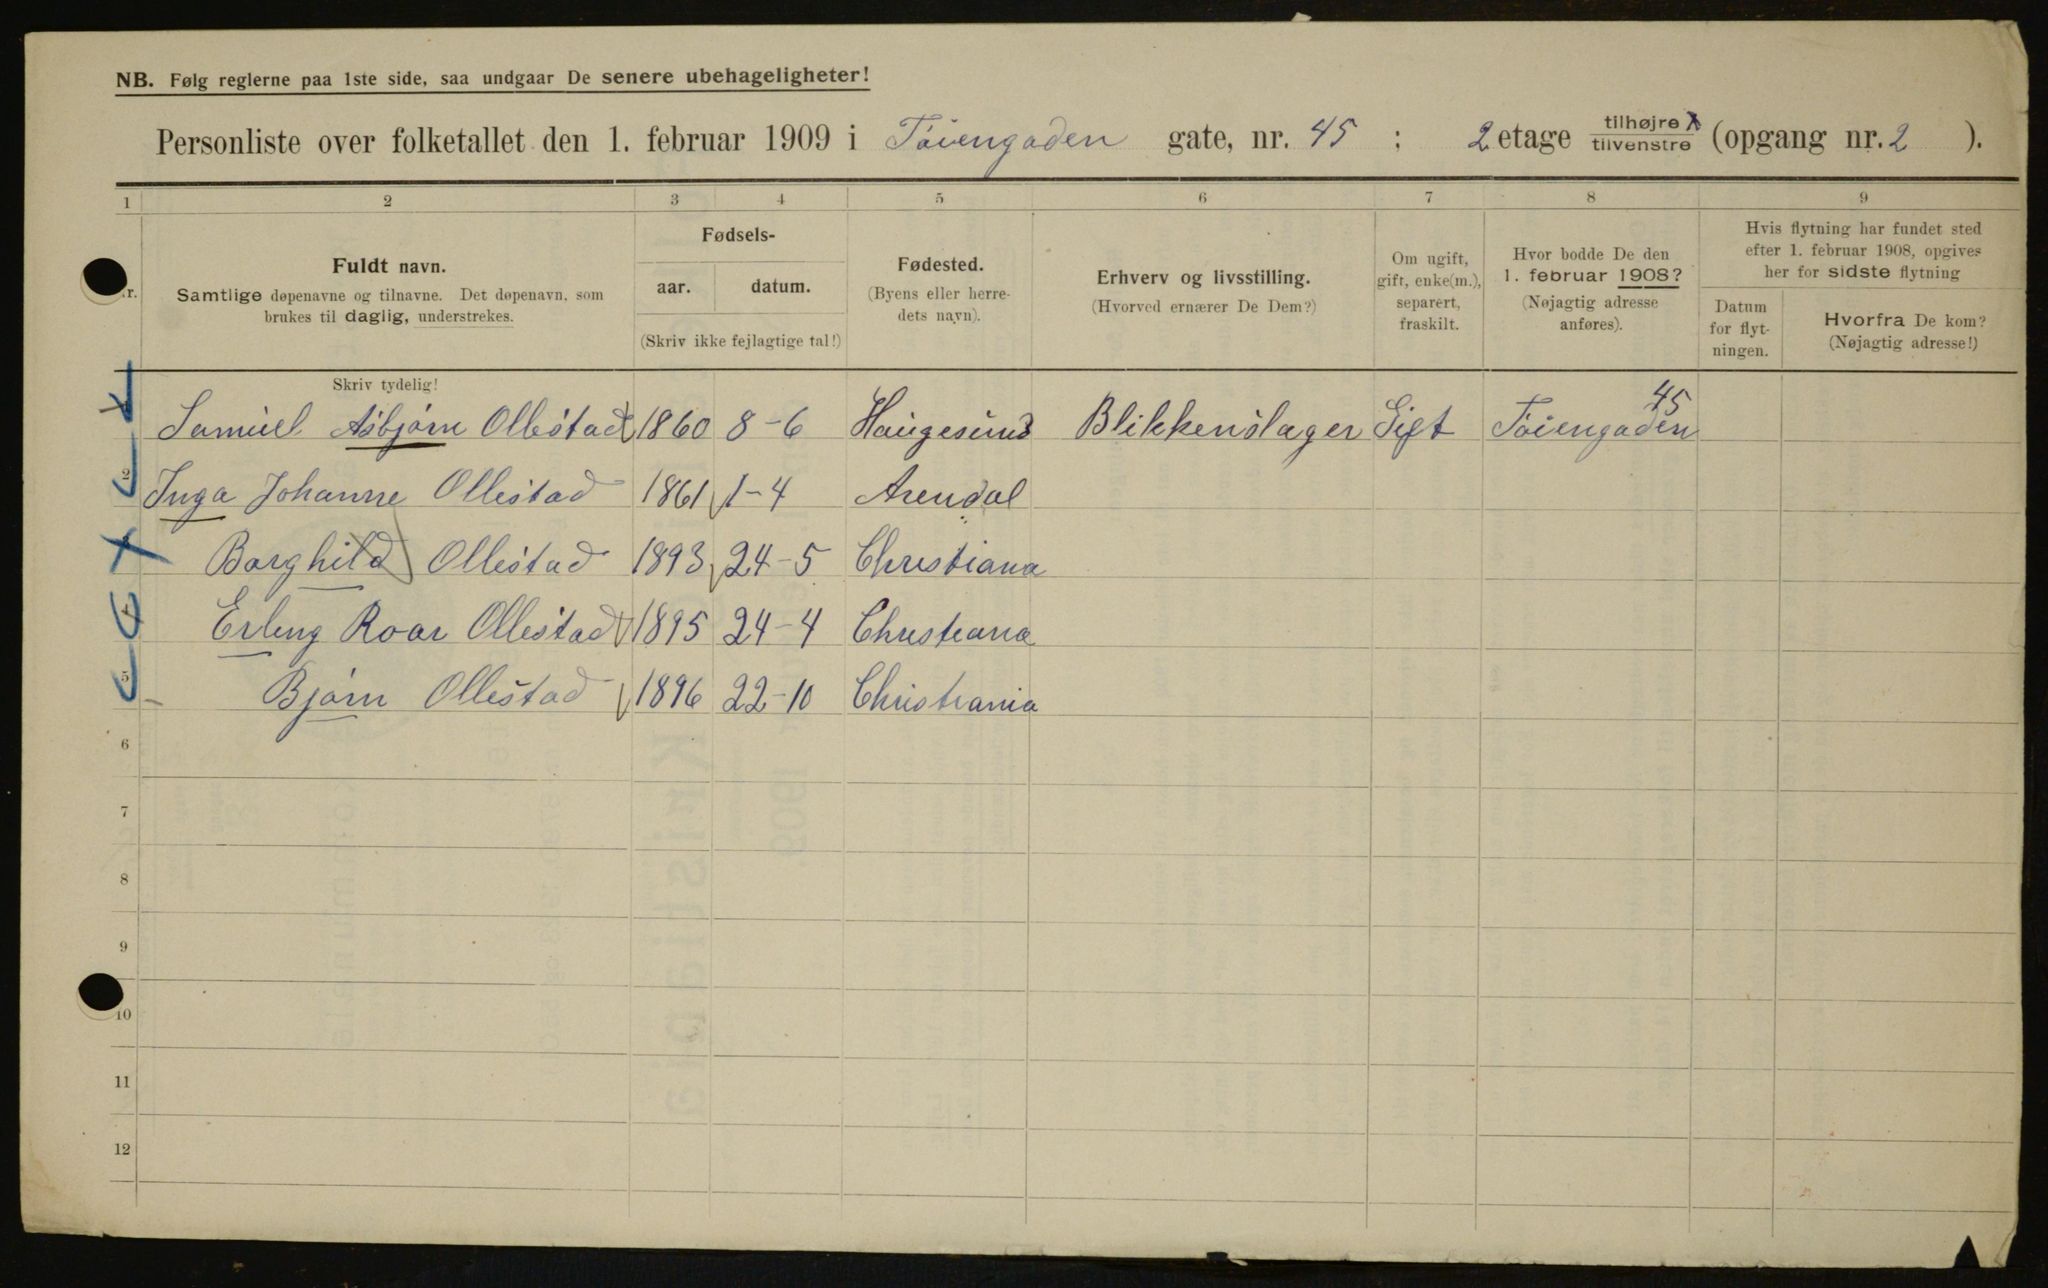 NB. Følg reglerne paa 1ste side, saa undgaar De senere ubehageligheter!
Personliste over folketallet den 1. februar 1909 i Tøiengaden gate, nr. 45 ; 2 etage tilhøjre X tilvenstre (opgang nr. 2 ).
1 2 3 4 5 6 7 8 9
Fuldt navn.
Samtlige døpenavne og tilnavne. Det døpenavn, som
brukes til daglig, understrekes.
Skriv tydelig!
Fødsels-
aar. datum.
(Skriv ikke fejlagtige tal!)
Fødested.
(Byens eller herre-
dets navn).
Erhverv og livsstilling.
(Hvorved ernærer De Dem?)
Om ugift,
gift, enke(m.),
separert,
fraskilt.
Hvor bodde De den
1. februar 1908?
(Nøjagtig adresse
anføres).
Hvis flytning har fundet sted
efter 1. februar 1908, opgives
her for sidste flytning
Datum
for flyt-
ningen.
Hvorfra De kom?
(Nøjagtig adresse!)
Samuel Asbjørn Ollestad 1860 8-6 Haugesund Blikkenslager Gift Tøiengaden 45
2 Inga Johanne Ollestad 1861 1-4 Arendal
Borghild Ollestad 1893 24-5 Christiana
4 Erling Roar Ollestad 1895 24-4 Christiana
5 Bjørn Ollestad 1896 22-10 Christiania
6
7
8
9
10
11
12